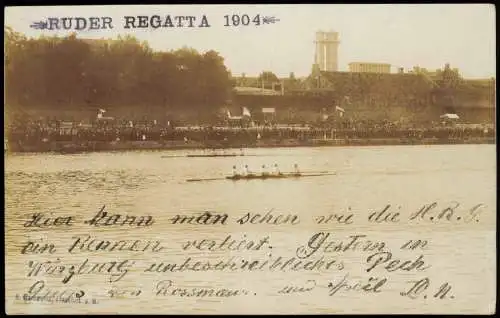 RUDER REGATTA 1904
Hier kann man sehen wie die H.R.G.
ein Rennen verliert. Gestern in
Würzburg unbeschreibliches Pech
Gruss von Rossmann. und